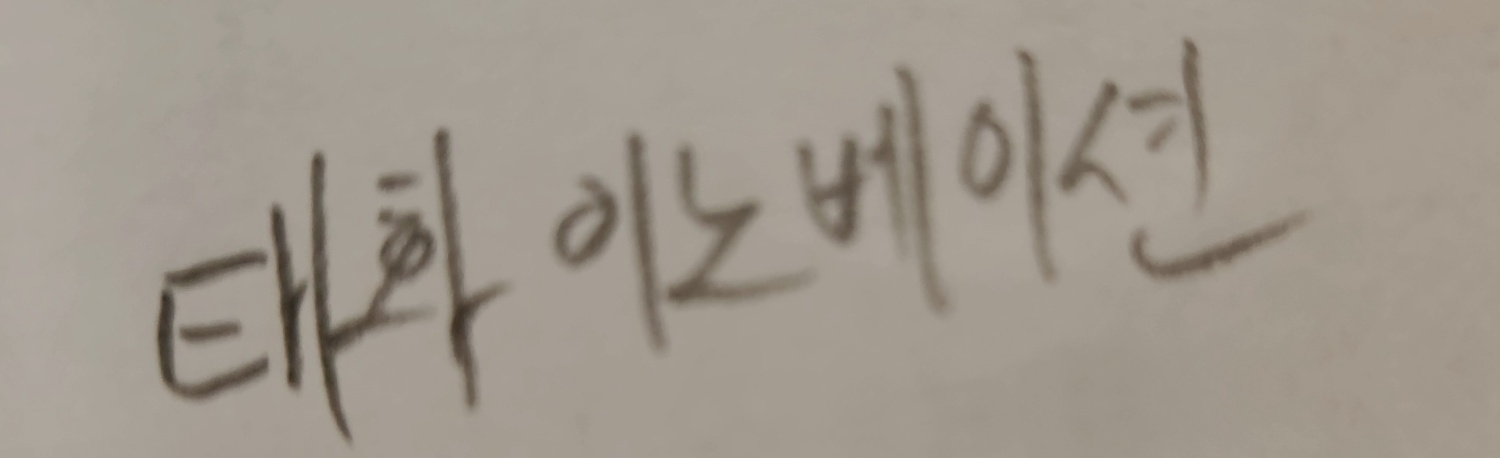 태화 이노베이션